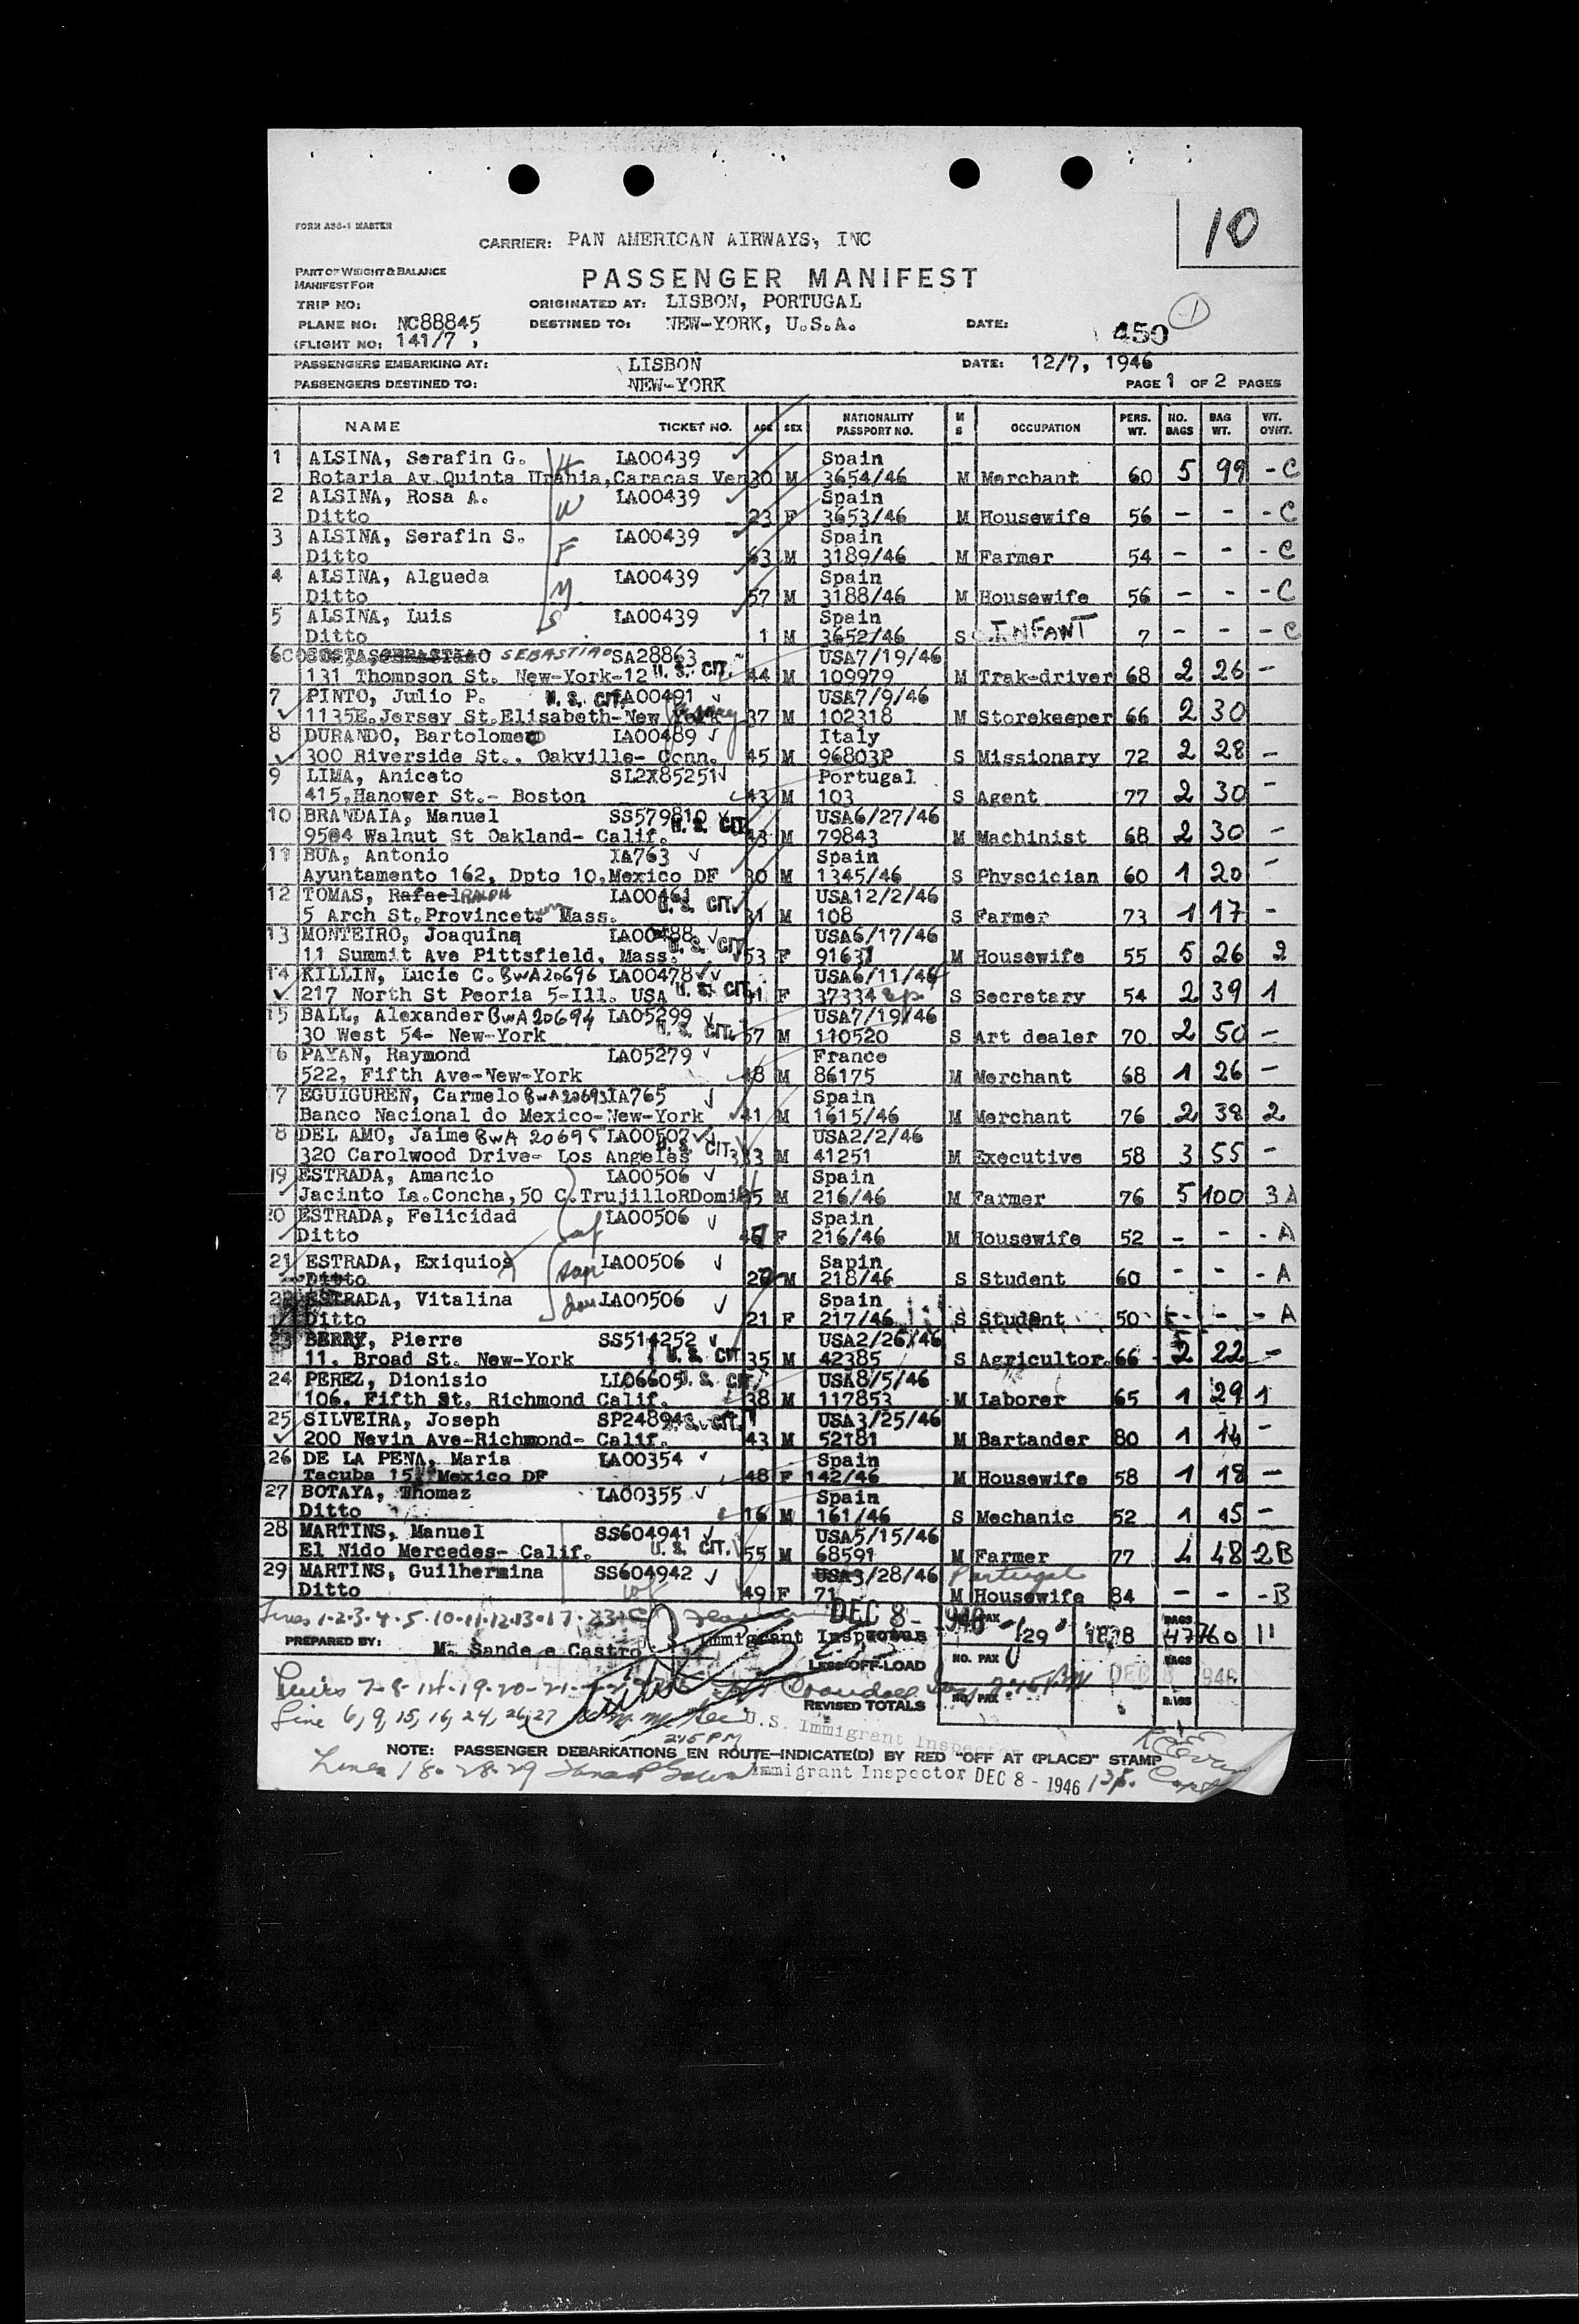 10
FORM ASG-1 MASTER
CARRIER: PAN AMERICAN AIRWAYS, INC
PART OF WEIGHT & BALANCE
MANIFEST FOR
PASSENGER MANIFEST
TRIP NO: ORIGINATED AT: LISBON, PORTUGAL
PLANE NO: NC88845 DESTINED TO: NEW-YORK, U.S.A. DATE: 450
FLIGHT NO: 141/7
PASSENGERS EMBARKING AT: LISBON DATE: 12/7, 1946
PASSENGERS DESTINED TO: NEW-YORK PAGE 1 OF 2 PAGES
NAME TICKET NO. AGE SEX NATIONALITY PASSPORT NO. M S OCCUPATION PERS. WT. NO. BAGS BAG WT. WT. OVHT.
1 ALSINA, Serafin G. H LA00439 Spain
Rotaria Av.Quinta Urania,Caracas Ven 30 M 3654/46 M Merchant 60 5 99 - C
2 ALSINA, Rosa A. W LA00439 Spain
Ditto 23 F 3653/46 M Housewife 56 - - - C
3 ALSINA, Serafin S. F LA00439 Spain
Ditto 63 M 3189/46 M Farmer 54 - - - C
4 ALSINA, Algueda M LA00439 Spain
Ditto 57 M 3188/46 M Housewife 56 - - - C
5 ALSINA, Luis S LA00439 Spain
Ditto 1 M 3652/46 S INFANT 7 - - - C
6 COSTA, SEBASTIAO SEBASTIAO SA28863 USA7/19/46
131 Thompson St. New-York-12 U. S. CIT. 44 M 109979 M Trak-driver 68 2 26 -
7 PINTO, Julio P. U. S. CIT. LA00491 USA7/9/46
1135E.Jersey St.Elisabeth-New York Jersey 37 M 102318 M Storekeeper 66 2 30
8 DURANDO, Bartolomeo LA00489 Italy
300 Riverside St.. Oakville- Conn. 45 M 96803P S Missionary 72 2 28 -
9 LIMA, Aniceto SL2X85251 Portugal
415,Hanower St.- Boston 43 M 103 S Agent 77 2 30 -
10 BRANDAIA, Manuel SS579810 USA6/27/46
9504 Walnut St Oakland- Calif. U. S. CIT. 43 M 79843 M Machinist 68 2 30 -
11 BUA, Antonio IA763 Spain
Ayuntamento 162, Dpto 10.Mexico DF 30 M 1345/46 S Physcician 60 1 20 -
12 TOMAS, Rafael RALPH LA00461 USA12/2/46
5 Arch St.Provincet. Mass. U. S. CIT. 31 M 108 S Farmer 73 1 17 -
13 MONTEIRO, Joaquina LA00488 USA6/17/46
11 Summit Ave Pittsfield, Mass. U. S. CIT. 53 F 91637 M Housewife 55 5 26 2
14 KILLIN, Lucie C. BWA20696 LA00478 USA6/11/46
217 North St Peoria 5-Ill. USA U. S. CIT. 41 F 37334 S Secretary 54 2 39 1
15 BALL, Alexander BWA20694 LA05299 USA7/19/46
30 West 54- New-York U. S. CIT. 57 M 110520 S Art dealer 70 2 50 -
6 PAYAN, Raymond LA05279 France
522, Fifth Ave-New-York 48 M 86175 M Merchant 68 1 26 -
7 EGUIGUREN, Carmelo BWA20693 IA765 Spain
Banco Nacional do Mexico-New-York 41 M 1615/46 M Merchant 76 2 38 2
8 DEL AMO, Jaime BWA 20695 LA00507 USA2/2/46
320 Carolwood Drive- Los Angeles U. S. CIT. 33 M 41251 M Executive 58 3 55 -
19 ESTRADA, Amancio LA00506 Spain
Jacinto La.Concha,50 C.TrujilloRDomi 55 M 216/46 M Farmer 76 5 100 3 A
20 ESTRADA, Felicidad LA00506 Spain
Ditto F 216/46 M Housewife 52 - - - A
21 ESTRADA, Exiquios LA00506 Sapin
Ditto M 218/46 S Student 60 - - - A
22 ESTRADA, Vitalina LA00506 Spain
Ditto 21 F 217/46 S Student 50 - - - A
23 BERRY, Pierre SS514252 USA2/26/46
11. Broad St. New-York U. S. CIT. 35 M 42385 S Agricultor. 66 2 22 -
24 PEREZ, Dionisio LL06605 U. S. CIT. USA8/5/46
106. Fifth St. Richmond Calif. 38 M 117853 M Laborer 65 1 29 1
25 SILVEIRA, Joseph SP248943 U. S. CIT. USA3/25/46
200 Nevin Ave-Richmond- Calif. 43 M 52181 M Bartander 80 1 14 -
26 DE LA PENA, Maria LA00354 Spain
Tacuba 15. Mexico DF 48 F 142/46 M Housewife 58 1 18 -
27 BOTAYA, Thomaz LA00355 Spain
Ditto 16 M 161/46 S Mechanic 52 1 15 -
28 MARTINS, Manuel SS604941 USA5/15/46
El Nido Mercedes- Calif. U. S. CIT. 55 M 68591 M Farmer 77 4 48 2 B
29 MARTINS, Guilhermina SS604942 USA3/28/46 Portugal
Ditto wf 49 F 71 M Housewife 84 - - - B
Lines 1-2-3-4-5-10-11-12-13-17-23 DEC 8 - 1946 NO. PAX 29 1828 BAGS 47 760 11
PREPARED BY: M. Sande e Castro Immigrant Inspector
LESS OFF-LOAD NO. PAX BAGS
DEC 8 1946
REVISED TOTALS NO. PAX BAGS
Line 6, 9, 15, 16, 24, 26, 27
U.S. Immigrant Inspector
2:45 PM
NOTE: PASSENGER DEBARKATIONS EN ROUTE-INDICATE(D) BY RED "OFF AT (PLACE)" STAMP
Lines 18-28-29 Immigrant Inspector DEC 8 - 1946